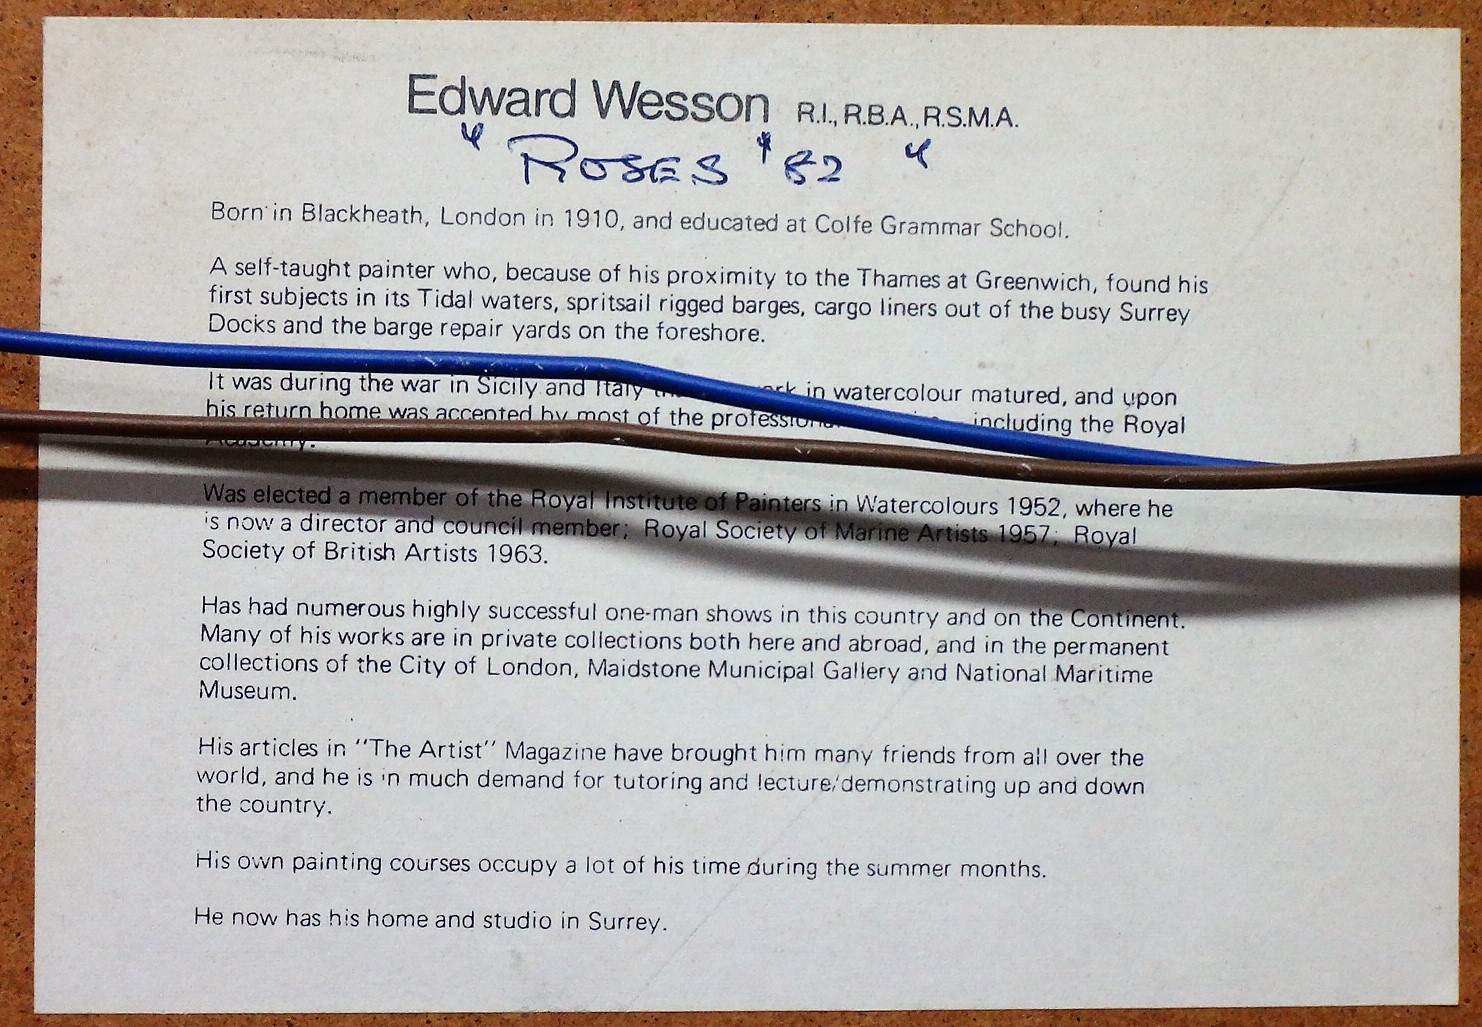 Edward Wesson R.I., R.B.A., R.S.M.A.
" ROSES " 82 "
Born in Blackheath, London in 1910, and educated at Colfe Grammar School.
A self-taught painter who, because of his proximity to the Thames at Greenwich, found his
first subjects in its Tidal waters, spritsail rigged barges, cargo liners out of the busy Surrey
Docks and the barge repair yards on the foreshore.
It was during the war in Sicily and Italy in watercolour matured, and upon
his return home was accepted by most of the including the Royal
Academy.
Was elected a member of the Royal Institute of Painters in Watercolours 1952, where he
is now a director and council member; Royal Society of Marine Artists 1957; Royal
Society of British Artists 1963.
Has had numerous highly successful one-man shows in this country and on the Continent.
Many of his works are in private collections both here and abroad, and in the permanent
collections of the City of London, Maidstone Municipal Gallery and National Maritime
Museum.
His articles in "The Artist" Magazine have brought him many friends from all over the
world, and he is in much demand for tutoring and lecture/demonstrating up and down
the country.
His own painting courses occupy a lot of his time during the summer months.
He now has his home and studio in Surrey.